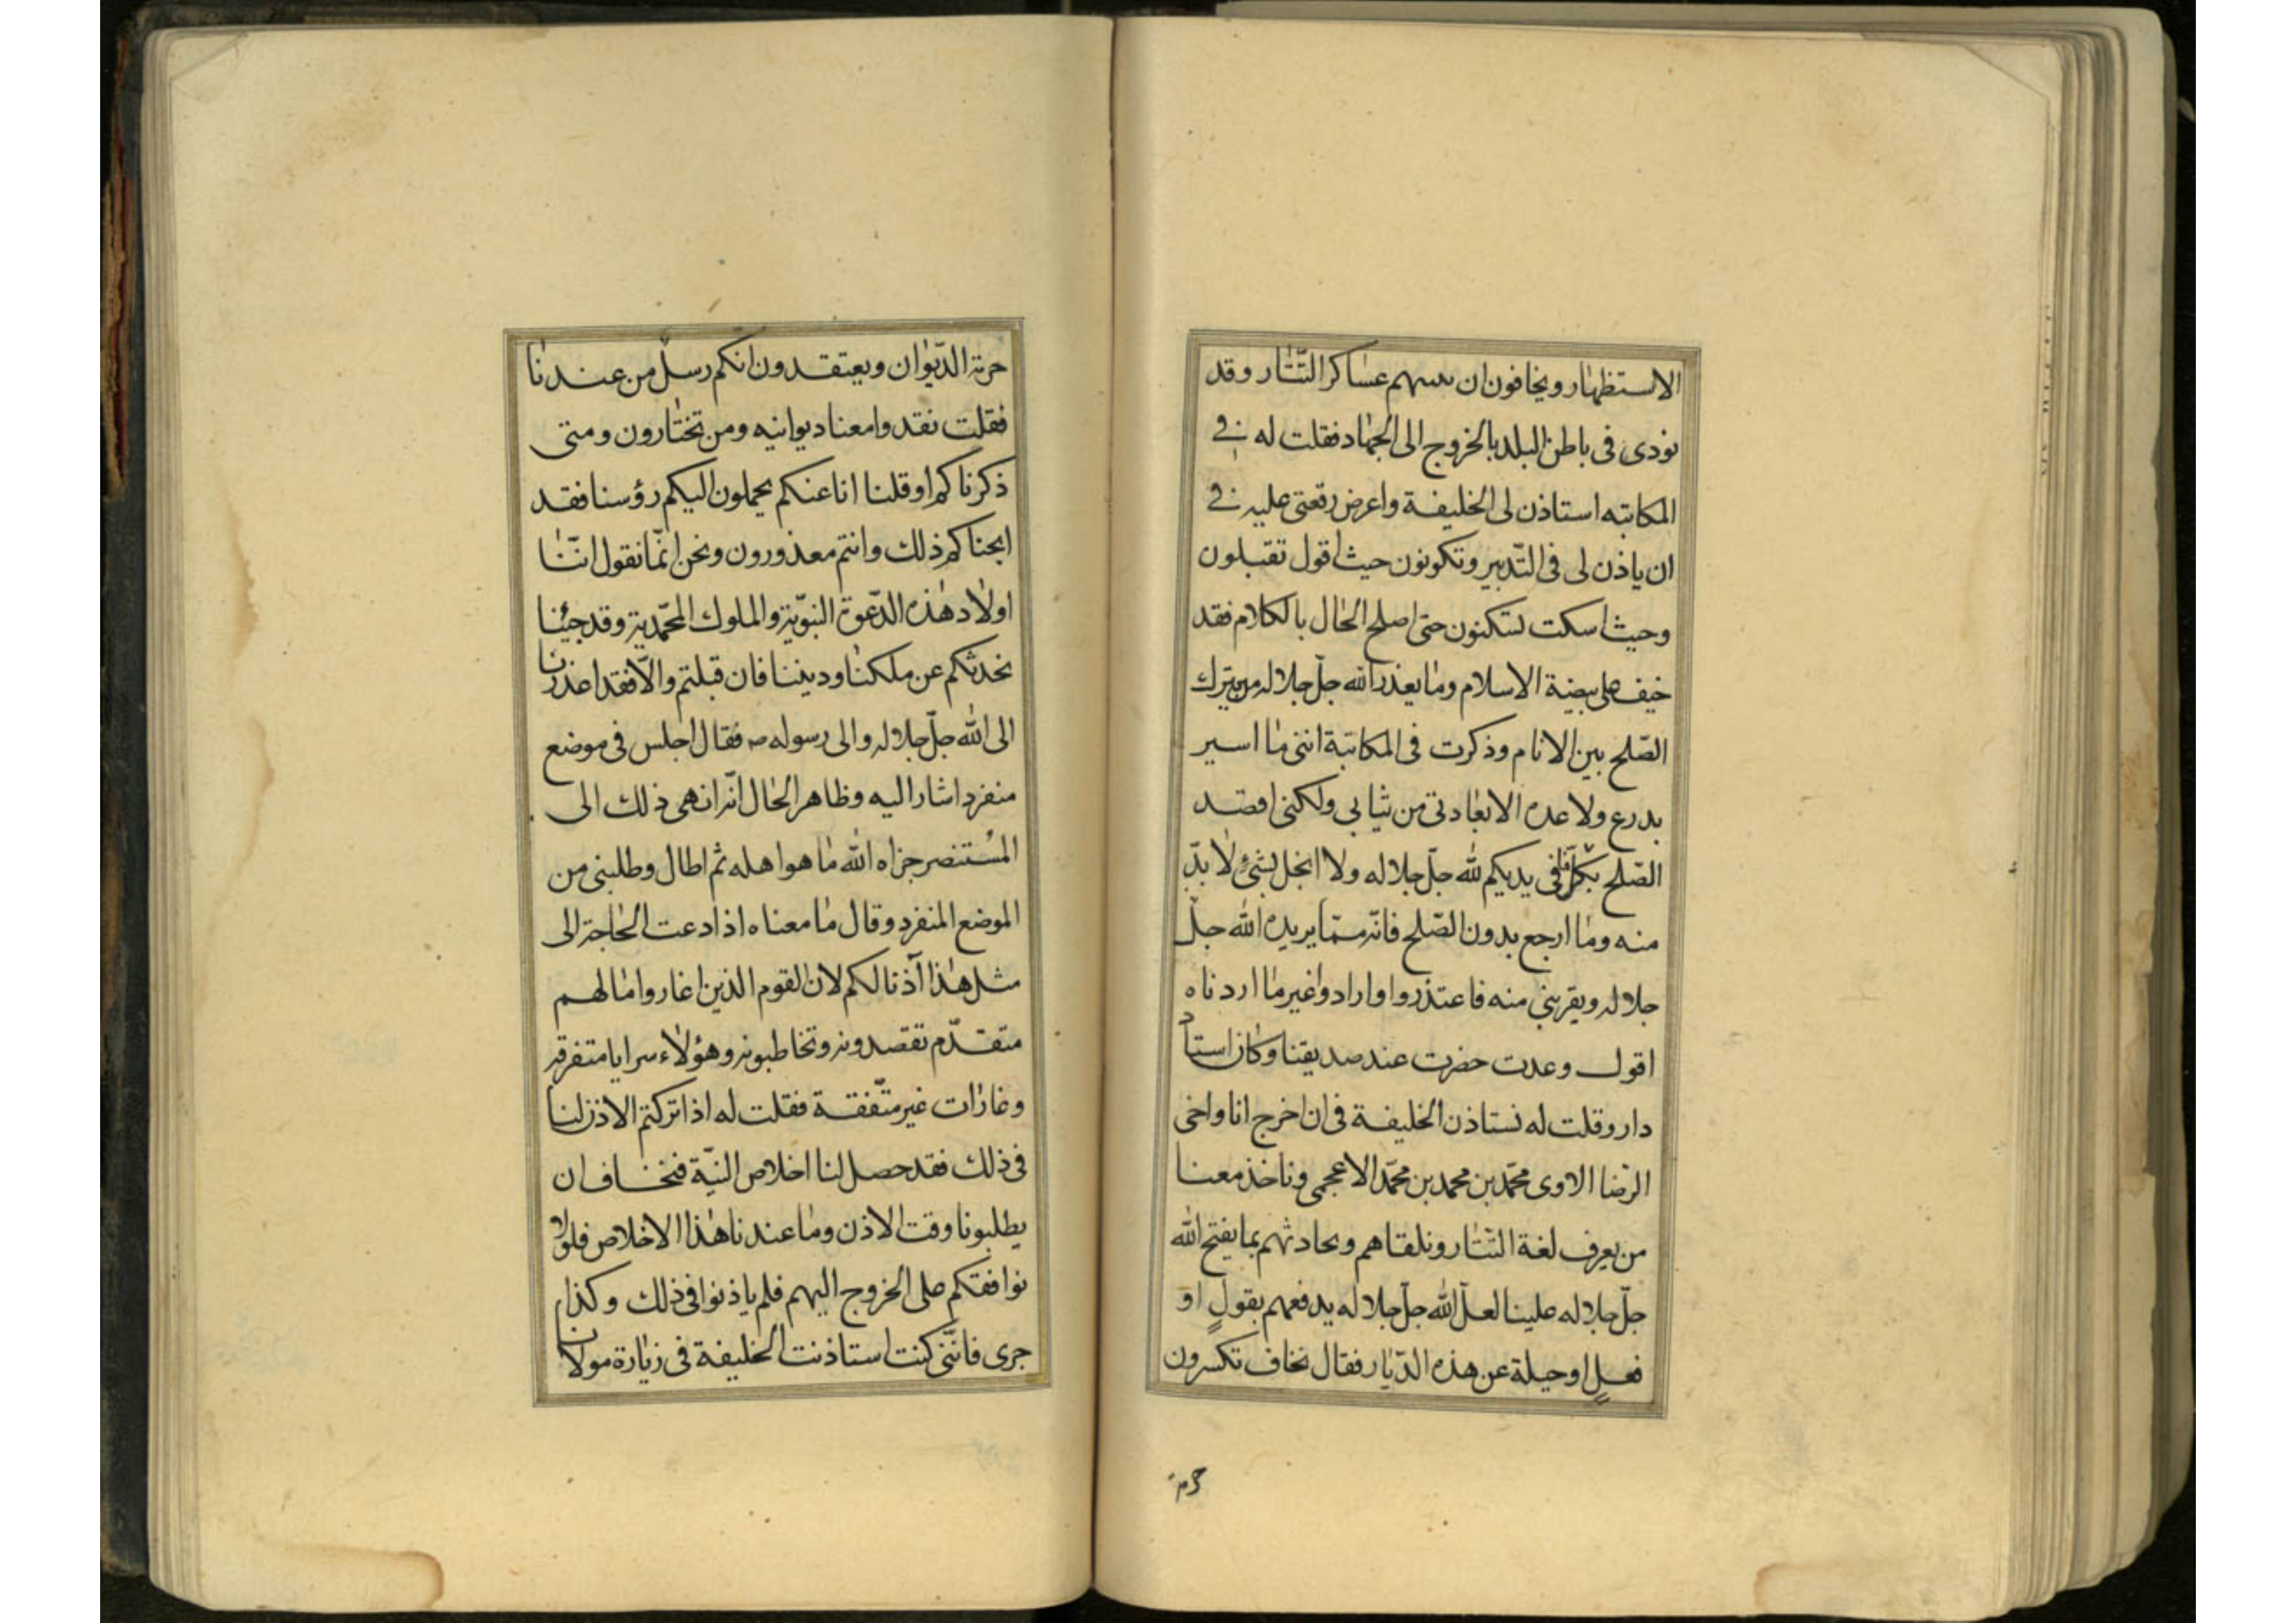 الاستظهار ويخافون ان عساكر التّتار وقد
نودى فى باطن البلد بالخروج الى الجهاد فقلت له فى
المكاتبه استاذن لى الخليفة واعرض رقعتى عليه فى
ان ياذن لى فى التّدبير وتكونون حيث اقول تقبلون
وحيث اسكت تسكنون حتى اصلح الحال بالكلام فقد
خيف على بيضة الاسلام وما يعذر الله جلّ جلاله من يترك
الصّلح بين الانام وذكرت فى المكاتبة اننى ما اسير
بدرع ولا عده الا بعادتى من ثيابى ولكنى اقصد
الصّلح بكلّ فى يديكم لله جلّ جلاله ولا ابخل بشئ لا بدّ
منه وما ارجع بدون الصّلح فانّه ممّا يريده الله جلّ
جلاله ويقربنى منه فاعتذروا وارادوا غير ما اردناه
اقول وعدت حضرت عند صديقنا وكان استاد
دار وقلت له نستاذن الخليفة فى ان اخرج انا واخى
الرضا الاوى محمّد بن محمد بن محمّد الاعجمى وناخذ معنا
من يعرف لغة التّتار ونلقاهم ونحادثهم بما يفتح الله
جلّ جلاله علينا لعلّ الله جلّ جلاله يدفعهم بقولٍ او
فعلٍ او حيلة عن هذه الدّيار فقال نخاف تكسرون
حرمة
حرمة الدّيوان ويعتقدون انكم رسلٌ من عندنا
فقلت نفذوا معنا ديوانيه ومن تختارون ومتى
ذكرناكم او قلنا انا عنكم يحملون اليكم رؤسنا فقد
ابحناكم ذلك وانتم معذورون ونحن انّما نقول انّنا
اولاد هذه الدّعوة النبويّة والملوك المحمّدية وقد جئنا
نحدثكم عن ملكنا وديننا فان قبلتم والّا فقد اعذرنا
الى الله جلّ جلاله والى رسوله ص فقال اجلس فى موضع
منفرد اشار اليه وظاهر الحال انّه انهى ذلك الى
المُستنصر جزاه الله ما هو اهله ثم اطال وطلبنى من
الموضع المنفرد وقال ما معناه اذا دعت الحاجة الى
مثل هذا آذنا لكم لان القوم الذين اغاروا ما لهم
متقدّم تقصدونه وتخاطبونه وهؤلاء سرايا متفرقه
وغارات غير متّفقة فقلت له اذا تركتم الاذن لنا
فى ذلك فقد حصل لنا اخلاص النيّة فنخاف ان
يطلبونا وقت الاذن وما عندنا هذا الاخلاص فلا
نوافقكم على الخروج اليهم فلم ياذنوا فى ذلك وكذا
جرى فانّنى كنت استاذنت الخليفة فى زيارة مولانا